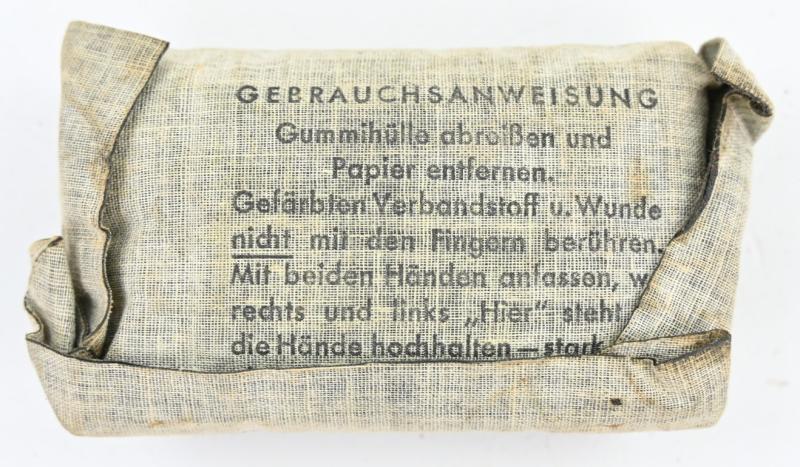 GEBRAUCHSANWEISUNG
Gummihülle abreißen und
Papier entfernen.
Gefärbten Verbandstoff u. Wunde
nicht mit den Fingern berühren.
Mit beiden Händen anfassen, w
rechts und links „Hier" steht
die Hände hochhalten – stark